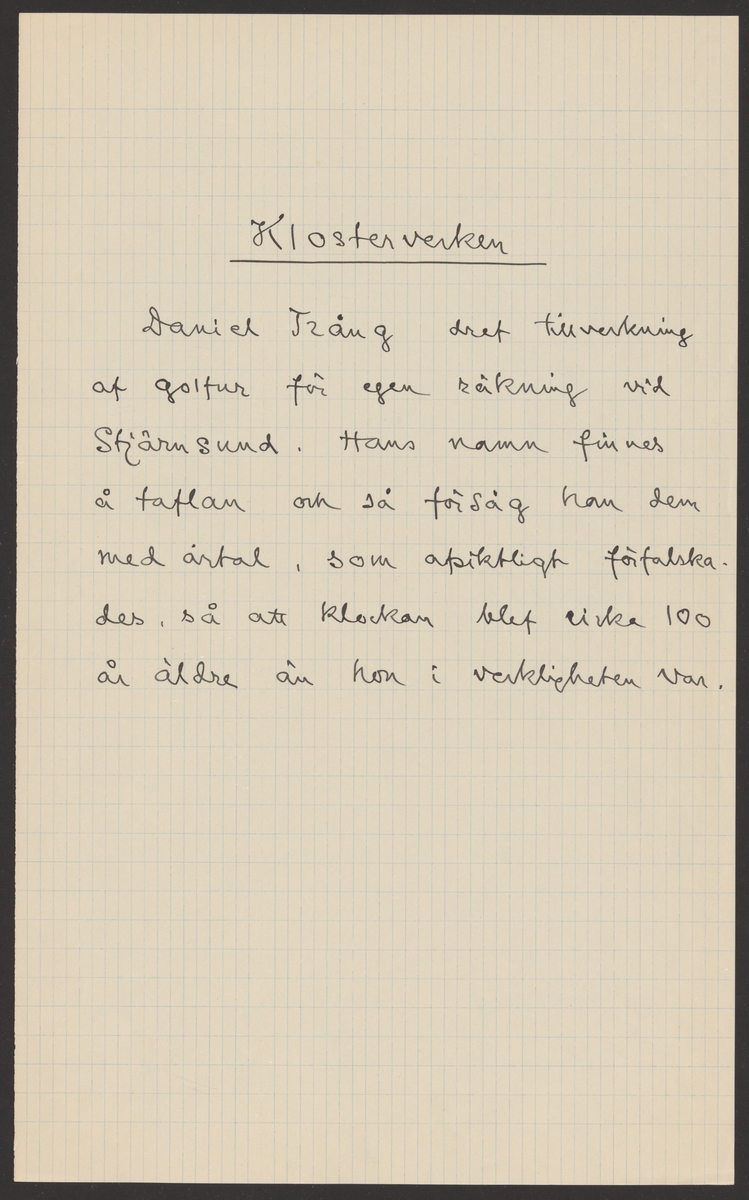 Klosterverken
Daniel Trång dref tillverkning
af golfur för egen räkning vid
Stjärnsund. Hans namn finnes
å taflan och så försåg han dem
med årtal, som afsiktligt förfalska-
des, så att klockan blef cirka 100
år äldre än hon i verkligheten var.